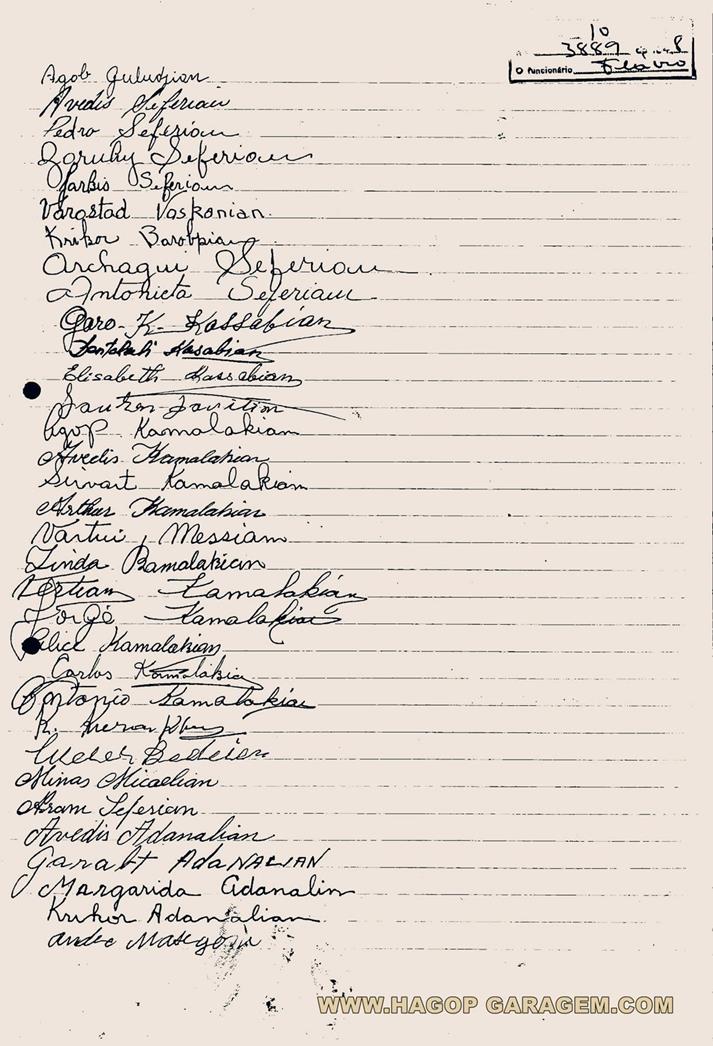 10
3889
O funcionário Flavio
Agob Guludjian
Avedis Seferian
Pedro Seferian
Zaruhy Seferian
Sarkis Seferian
Varastad Voskanian
Krikor
Archagui Seferian
Antonieta Seferian
Garo K. Kassabian
Kasabian
Elisabeth Kassabian
Agop Kamalakian
Avedis Kamalakian
Sirvart Kamalakian
Arthur Kamalakian
Vartui Messiam
Linda Bamalakian
Kamalakian
Jorge Kamalakian
Alice Kamalakian
Carlos Kamalakian
Antonio Kamalakian
Bedeian
Minas Micaelian
Aram Seferian
Avedis Adanalian
Garabt AdaNALIAN
Margarida Adanalin
Krikor Adanalian
andre
WWW.HAGOP GARAGEM.COM